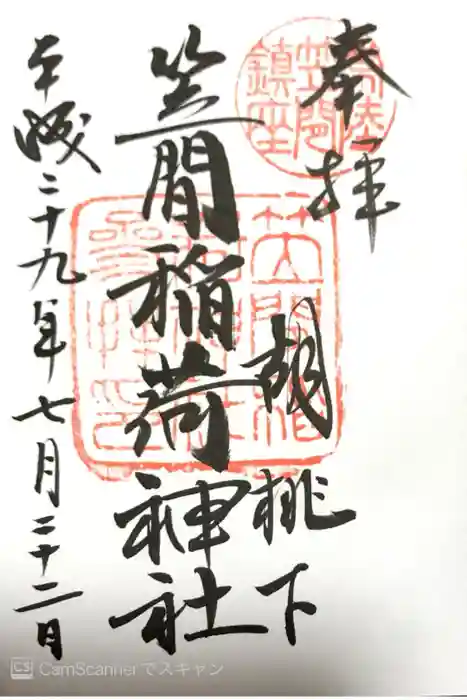 奉拝
胡桃下
笠間稲荷神社
平成二十九年七月二十二日
常陸
笠間
鎮座
CS CamScannerでスキャン